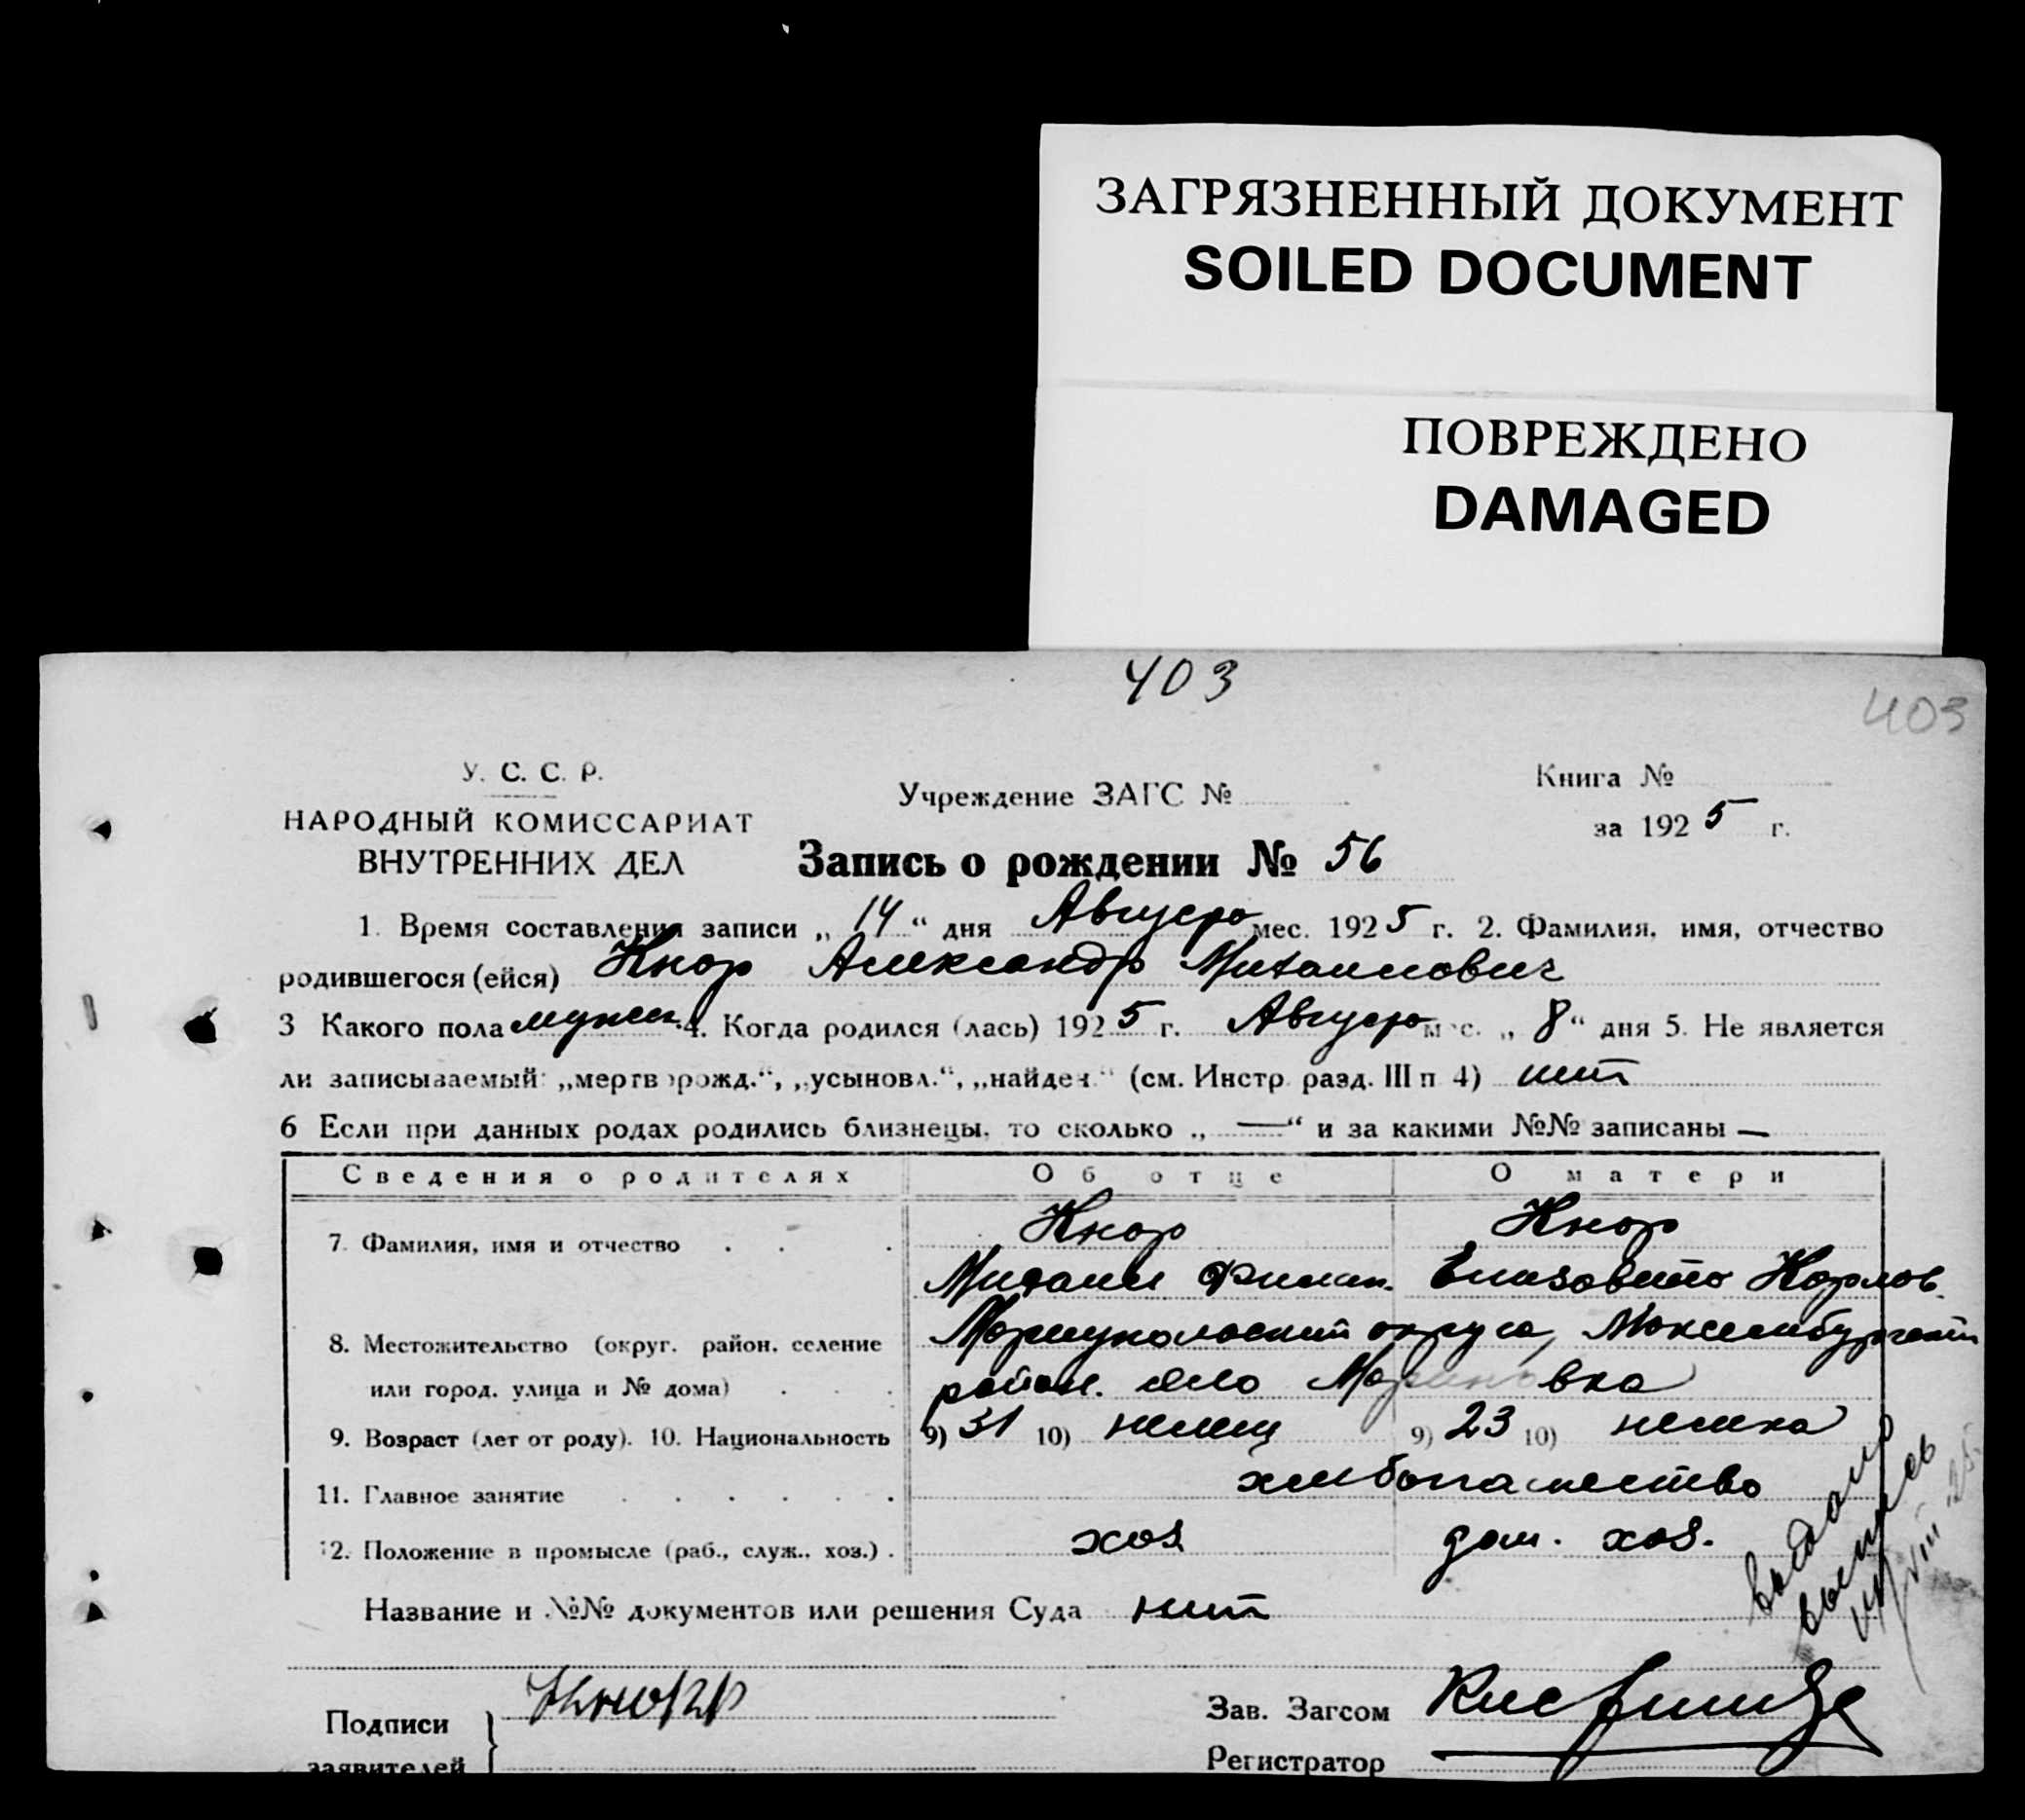 ЗАГРЯЗНЕННЫЙ ДОКУМЕНТ
SOILED DOCUMENT
ПОВРЕЖДЕНО
DAMAGED
403
403
У. С. С. Р.
НАРОДНЫЙ КОМИССАРИАТ
ВНУТРЕННИХ ДЕЛ
Учреждение ЗАГС №
Книга №
за 1925 г.
Запись о рождении № 56
1. Время составления записи „14“ дня Августа мес. 1925 г. 2. Фамилия, имя, отчество
родившегося (ейся) Кнор Александр Михайлович
3 Какого пола мужск. 4. Когда родился (лась) 1925 г. Августа мес. „8“ дня 5. Не является
ли записываемый: „мертворожд.“, „усыновл.“, „найден“ (см. Инстр. разд. III п 4) нет
6 Если при данных родах родились близнецы, то сколько „—“ и за какими №№ записаны —
Сведения о родителях Об отце О матери
7. Фамилия, имя и отчество Кнор Кнор
Михаил Филип. Елизавета Карлов.
8. Местожительство (округ. район. селение Мариупольский округа, Люксембургский
или город. улица и № дома) район. село Мариновка
9. Возраст (лет от роду). 10. Национальность 9) 31 10) немец 9) 23 10) немка
11. Главное занятие хлебопашество
12. Положение в промысле (раб., служ., хоз.) хоз дом. хоз.
Название и №№ документов или решения Суда нет
выдано
выпись
Подписи
заявителей
Кнорр
Зав. Загсом
Регистратор